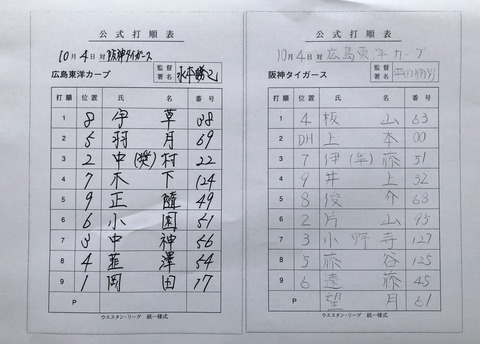 公式打順表
10月4日対 阪神タイガース
広島東洋カープ 監督署名 永本勝也
打順 位置 氏名 番号
1 8 宇草 38
2 5 羽月 69
3 2 中(奨)村 22
4 7 木下 124
5 9 正隨 49
6 6 小園 51
7 3 中神 56
8 4 韮澤 54
9 1 岡田 17
P
ウエスタン・リーグ 統一様式
公式打順表
10月4日対 広島東洋カープ
阪神タイガース 監督署名
打順 位置 氏名 番号
1 4 板山 63
2 DH 上本 00
3 7 伊(隼)藤 51
4 9 井上 32
5 8 俊介 68
6 2 片山 95
7 3 小野寺 127
8 5 藤谷 125
9 6 遠藤 45
P 望月 61
ウエスタン・リーグ 統一様式